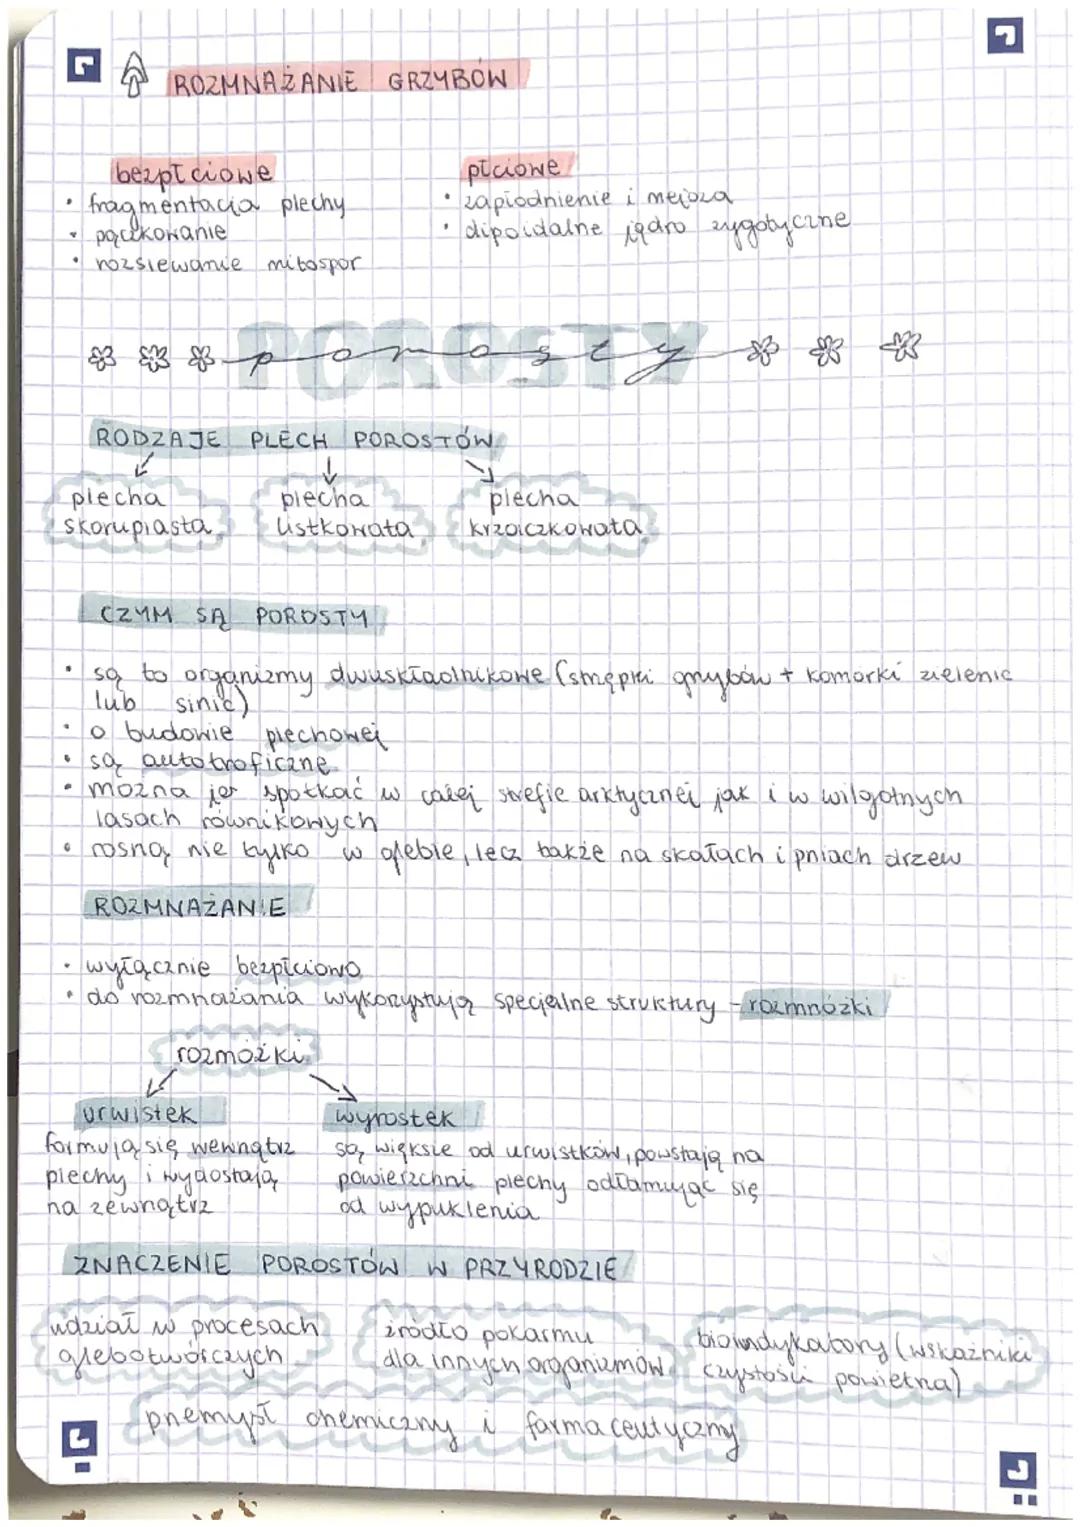 ROZMNAŻANIE GRZYBÓW
bezpłciowe
• fragmentacja plechy
• pączkowanie
• rozsiewanie mitospor
płciowe
• zapłodnienie i mejoza
• dipoidalne jądro zygotyczne
POROSTY
porosty
RODZAJE PLECH POROSTÓW
plecha
skorupiasta
plecha
listkowata
plecha
krzaczkowata
CZYM SĄ POROSTY
• są to organizmy dwuskładnikowe (strzępki grzybów + komórki zielenic
lub sinic)
• o budowie plechowej
• są autotroficzne
• można jes spotkać w całej strefie arktycznej jak i w wilgotnych
lasach równikowych
• rosną nie tylko w glebie, lecz także na skałach i pniach drzew
ROZMNAŻANIE
• wyłącznie bezpłciowo
• do rozmnażania wykorzystują specjalne struktury - rozmnóżki
rozmóżki
urwistek
formują się wewnątrz
plechy i wydostają
na zewnątrz
wyrostek
są większe od urwistków, powstają na
powierzchni plechy odłamując się
od wypuklenia
ZNACZENIE POROSTÓW W PRZYRODZIE
udział w procesach
glebotwórczych
źródło pokarmu
dla innych organizmów
bioindykatory (wskaźniki
czystości powietrza)
przemysł chemiczny i farmaceutyczny